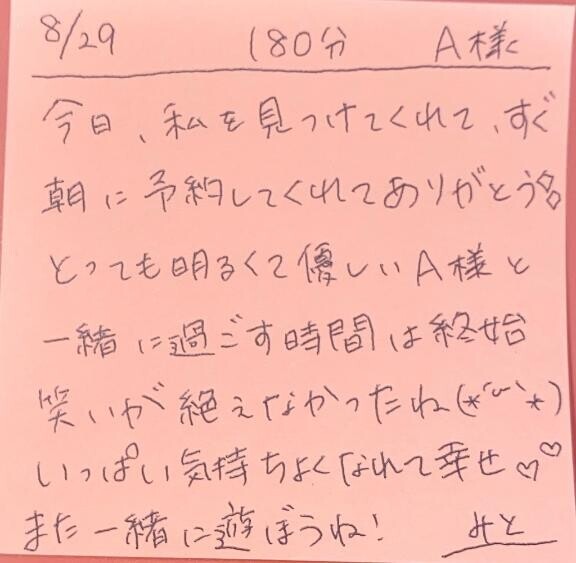 8/29 180分 A様
今日、私を見つけてくれて、すぐ
朝に予約してくれてありがとう
とっても明るくて優しいA様と
一緒に過ごす時間は終始
笑いが絶えなかったね(*´˘`*)
いっぱい気持ちよくなれて幸せ♡♡
また一緒に遊ぼうね! みと